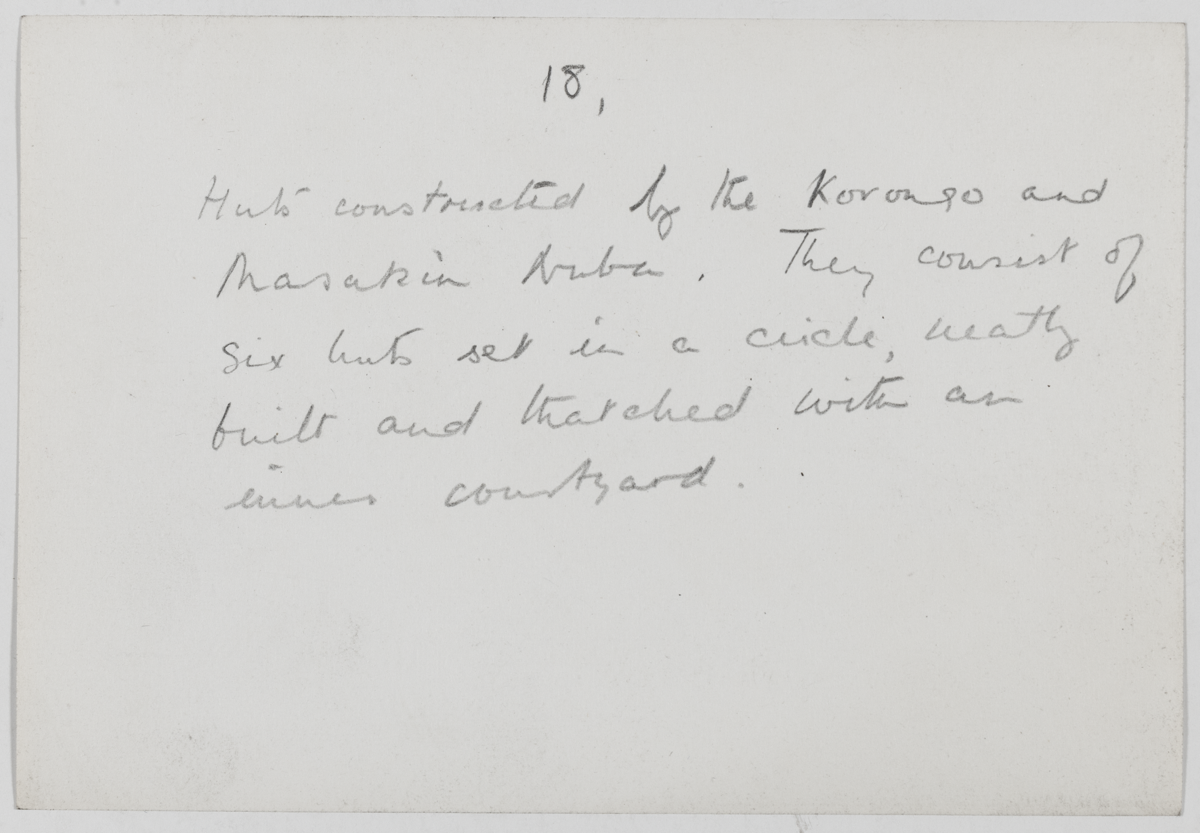 18,
Huts constructed by the Korongo and
Masakin Nuba. They consist of
six huts set in a circle, neatly
built and thatched with an
inner courtyard.